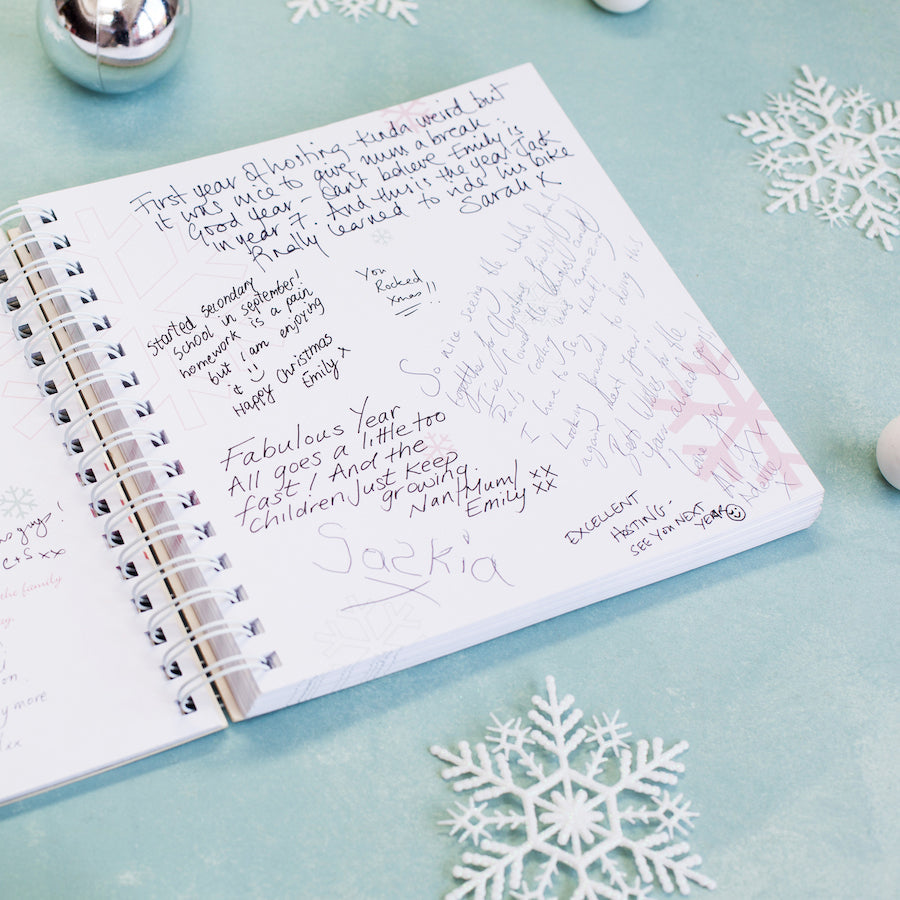 First year of hosting - kinda weird but
it was nice to give mum a break.
Good year - can't believe Emily is
in year 7. And this is the year Jack
finally learned to ride his bike
Sarah X
Started secondary
school in september!
homework is a pain
but I am enjoying
it
Happy Christmas
Emily x
You
Rocked
Xmas!!
So nice seeing the whole family
together for Christmas finally!
I've the laughs and
Dad's cooking was amazing
I have to say that!
Looking forward to doing this
again next year!!
Best wishes for the
year ahead guys
All
X
Fabulous Year
All goes a little too
fast! And the
children just keep
growing.
Nan/Mum/
Emily xx
xx
Saskia
X
EXCELLENT
HOSTING -
SEE YOU NEXT
YEAR
guys!
C+S xo xx
the family
more
xx